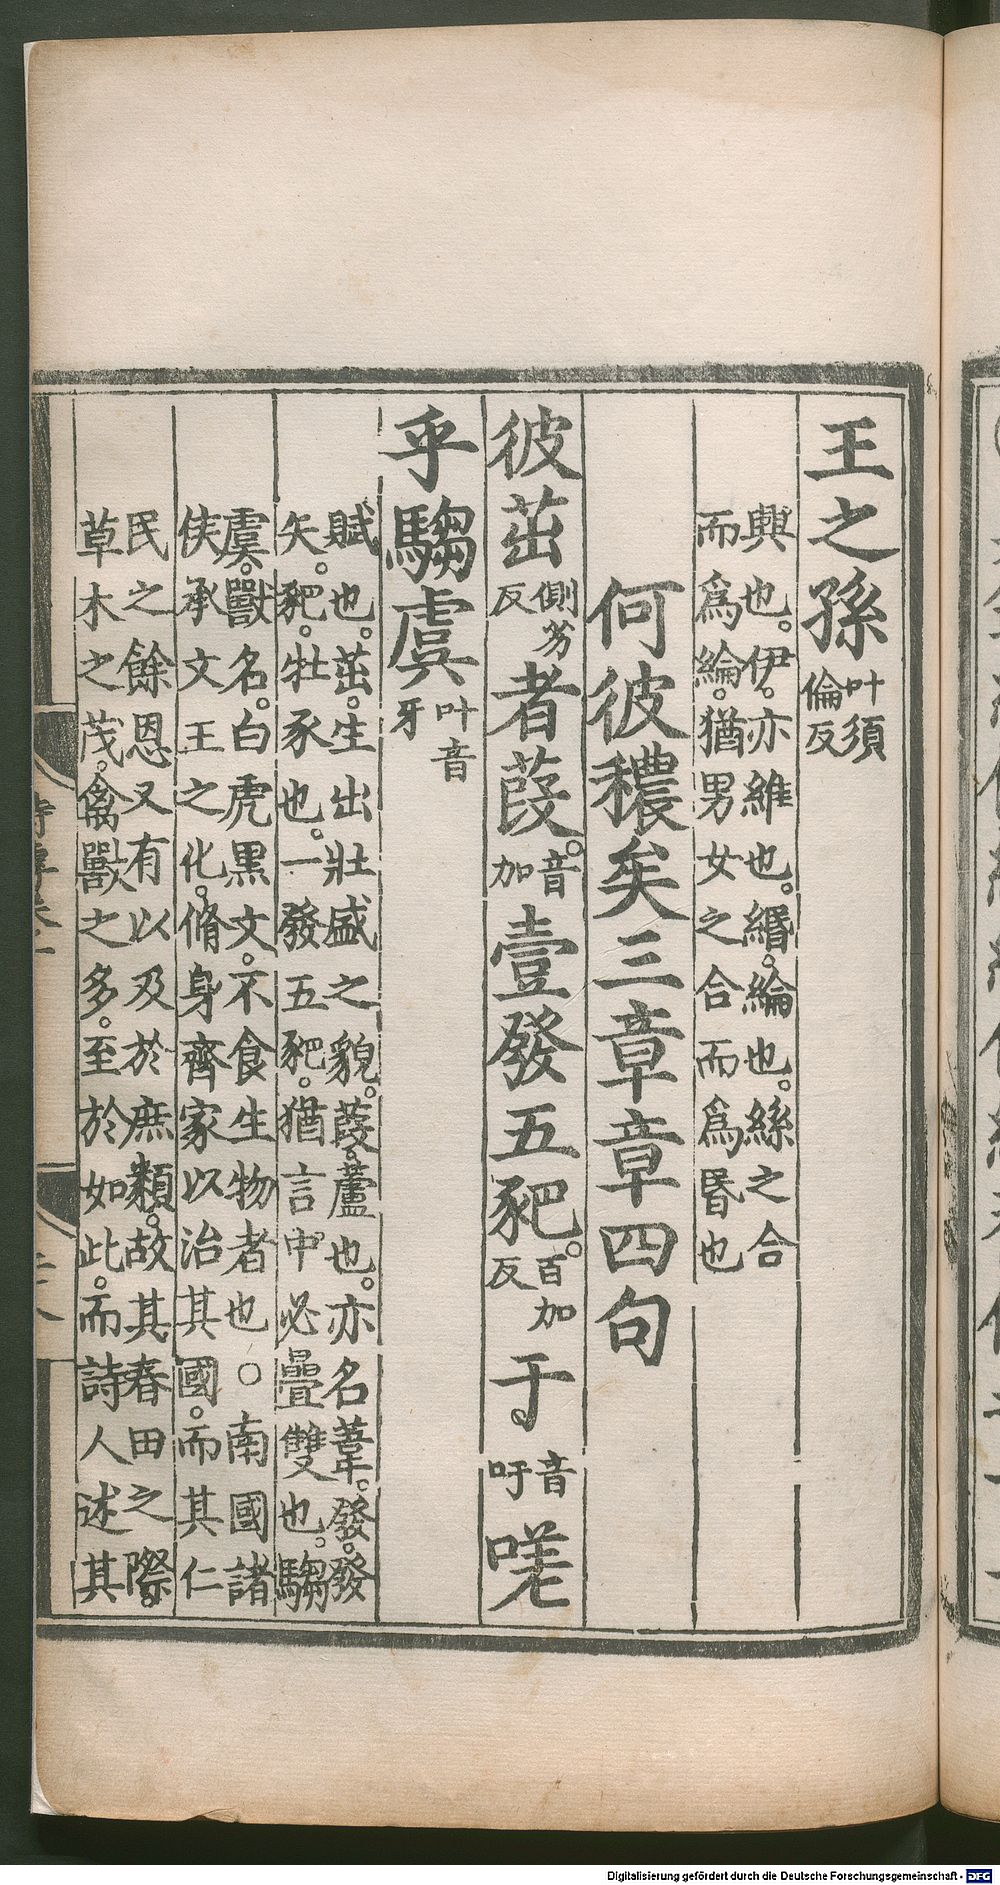 王之孫叶須倫反
興也。伊。亦維也。緡。綸也。絲之合
而爲綸。猶男女之合而爲昬也
何彼穠矣三章章四句
彼茁側芳反者葭。音加壹發五豝。百加反于音吁嗟
乎騶虞叶音牙
賦也。茁。生出壯盛之貌。葭。蘆也。亦名葦。發。發
矢。豝。牡豕也。一發五豝。猶言中必疊雙也。騶
虞。獸名。白虎黑文。不食生物者也○南國諸
侯承文王之化。脩身齊家以治其國。而其仁
民之餘恩又有以及於庶類。故其春田之際。
草木之茂。禽獸之多。至於如此。而詩人述其
Digitalisierung gefördert durch die Deutsche Forschungsgemeinschaft - DFG